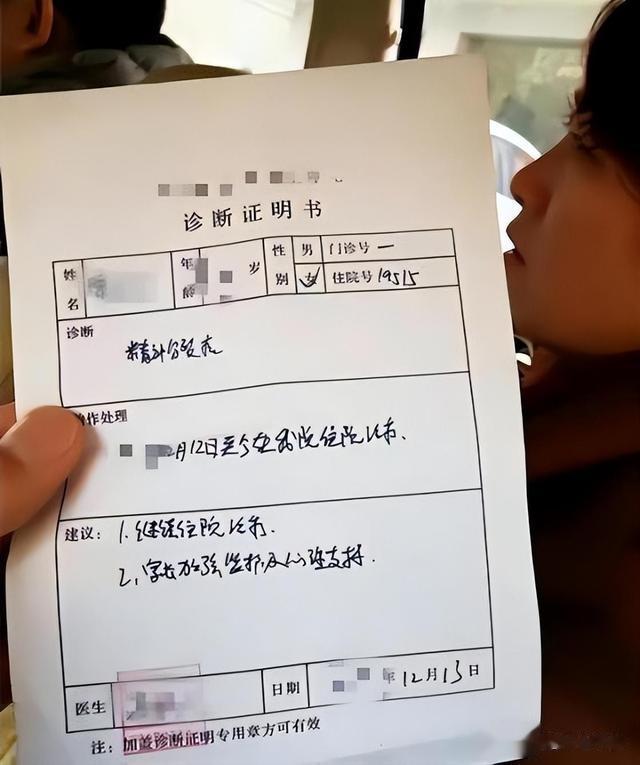 诊断证明书
姓名 年龄 岁 性别 男 女 门诊号 一 住院号 19515
诊断
精神分裂症
作处理
月12日至今在我院住院治疗.
建议: 1. 继续住院治疗.
2. 家长加强监护及心理支持.
医生 日期 年12月13日
注: 加盖诊断证明专用章方可有效